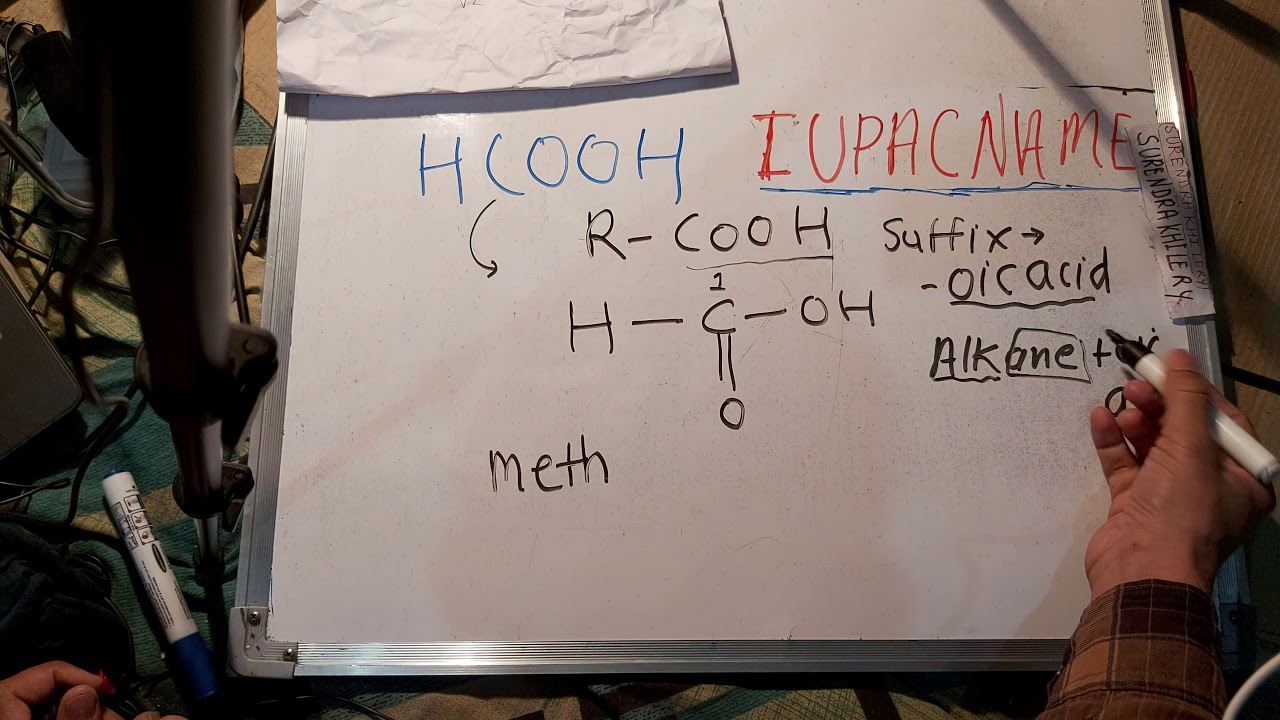 HCOOH IUPAC NAME
SURENDRA KHILERY
SURENDRA KHILERY
R-COOH Suffix →
-oic acid
1
H-C-OH
Alkane +
O
meth